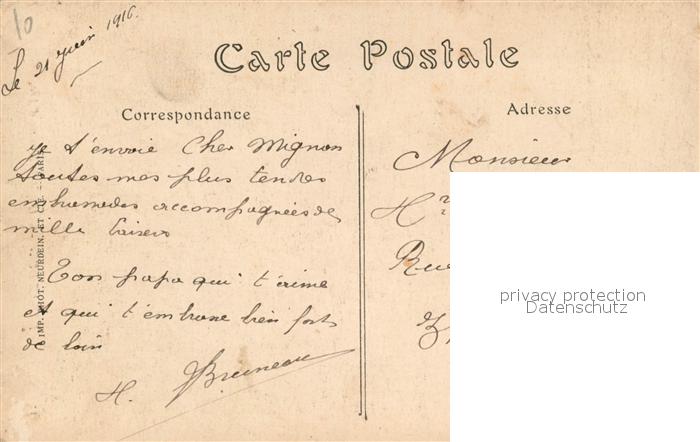 10
Le 21 juin 1916.
Carte Postale
Correspondance
Adresse
je t'envoie Cher Mignon
toutes mes plus tendres
embrassades accompagnées de
mille baisers
Ton papa qui t'aime
et qui t'embrasse bien fort
de loin
H. Bruneau
IMP. NEURDEIN ET CIE. - PARIS
Monsieur
Rue
privacy protection
Datenschutz